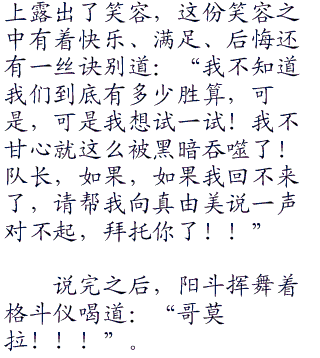 上露出了笑容，这份笑容之
中有着快乐、满足、后悔还
有一丝诀别道：“我不知道
我们到底有多少胜算，可
是，可是我想试一试！我不
甘心就这么被黑暗吞噬了！
队长，如果，如果我回不来
了，请帮我向真由美说一声
对不起，拜托你了！！”
说完之后，阳斗挥舞着
格斗仪喝道：“哥莫
拉！！！”。